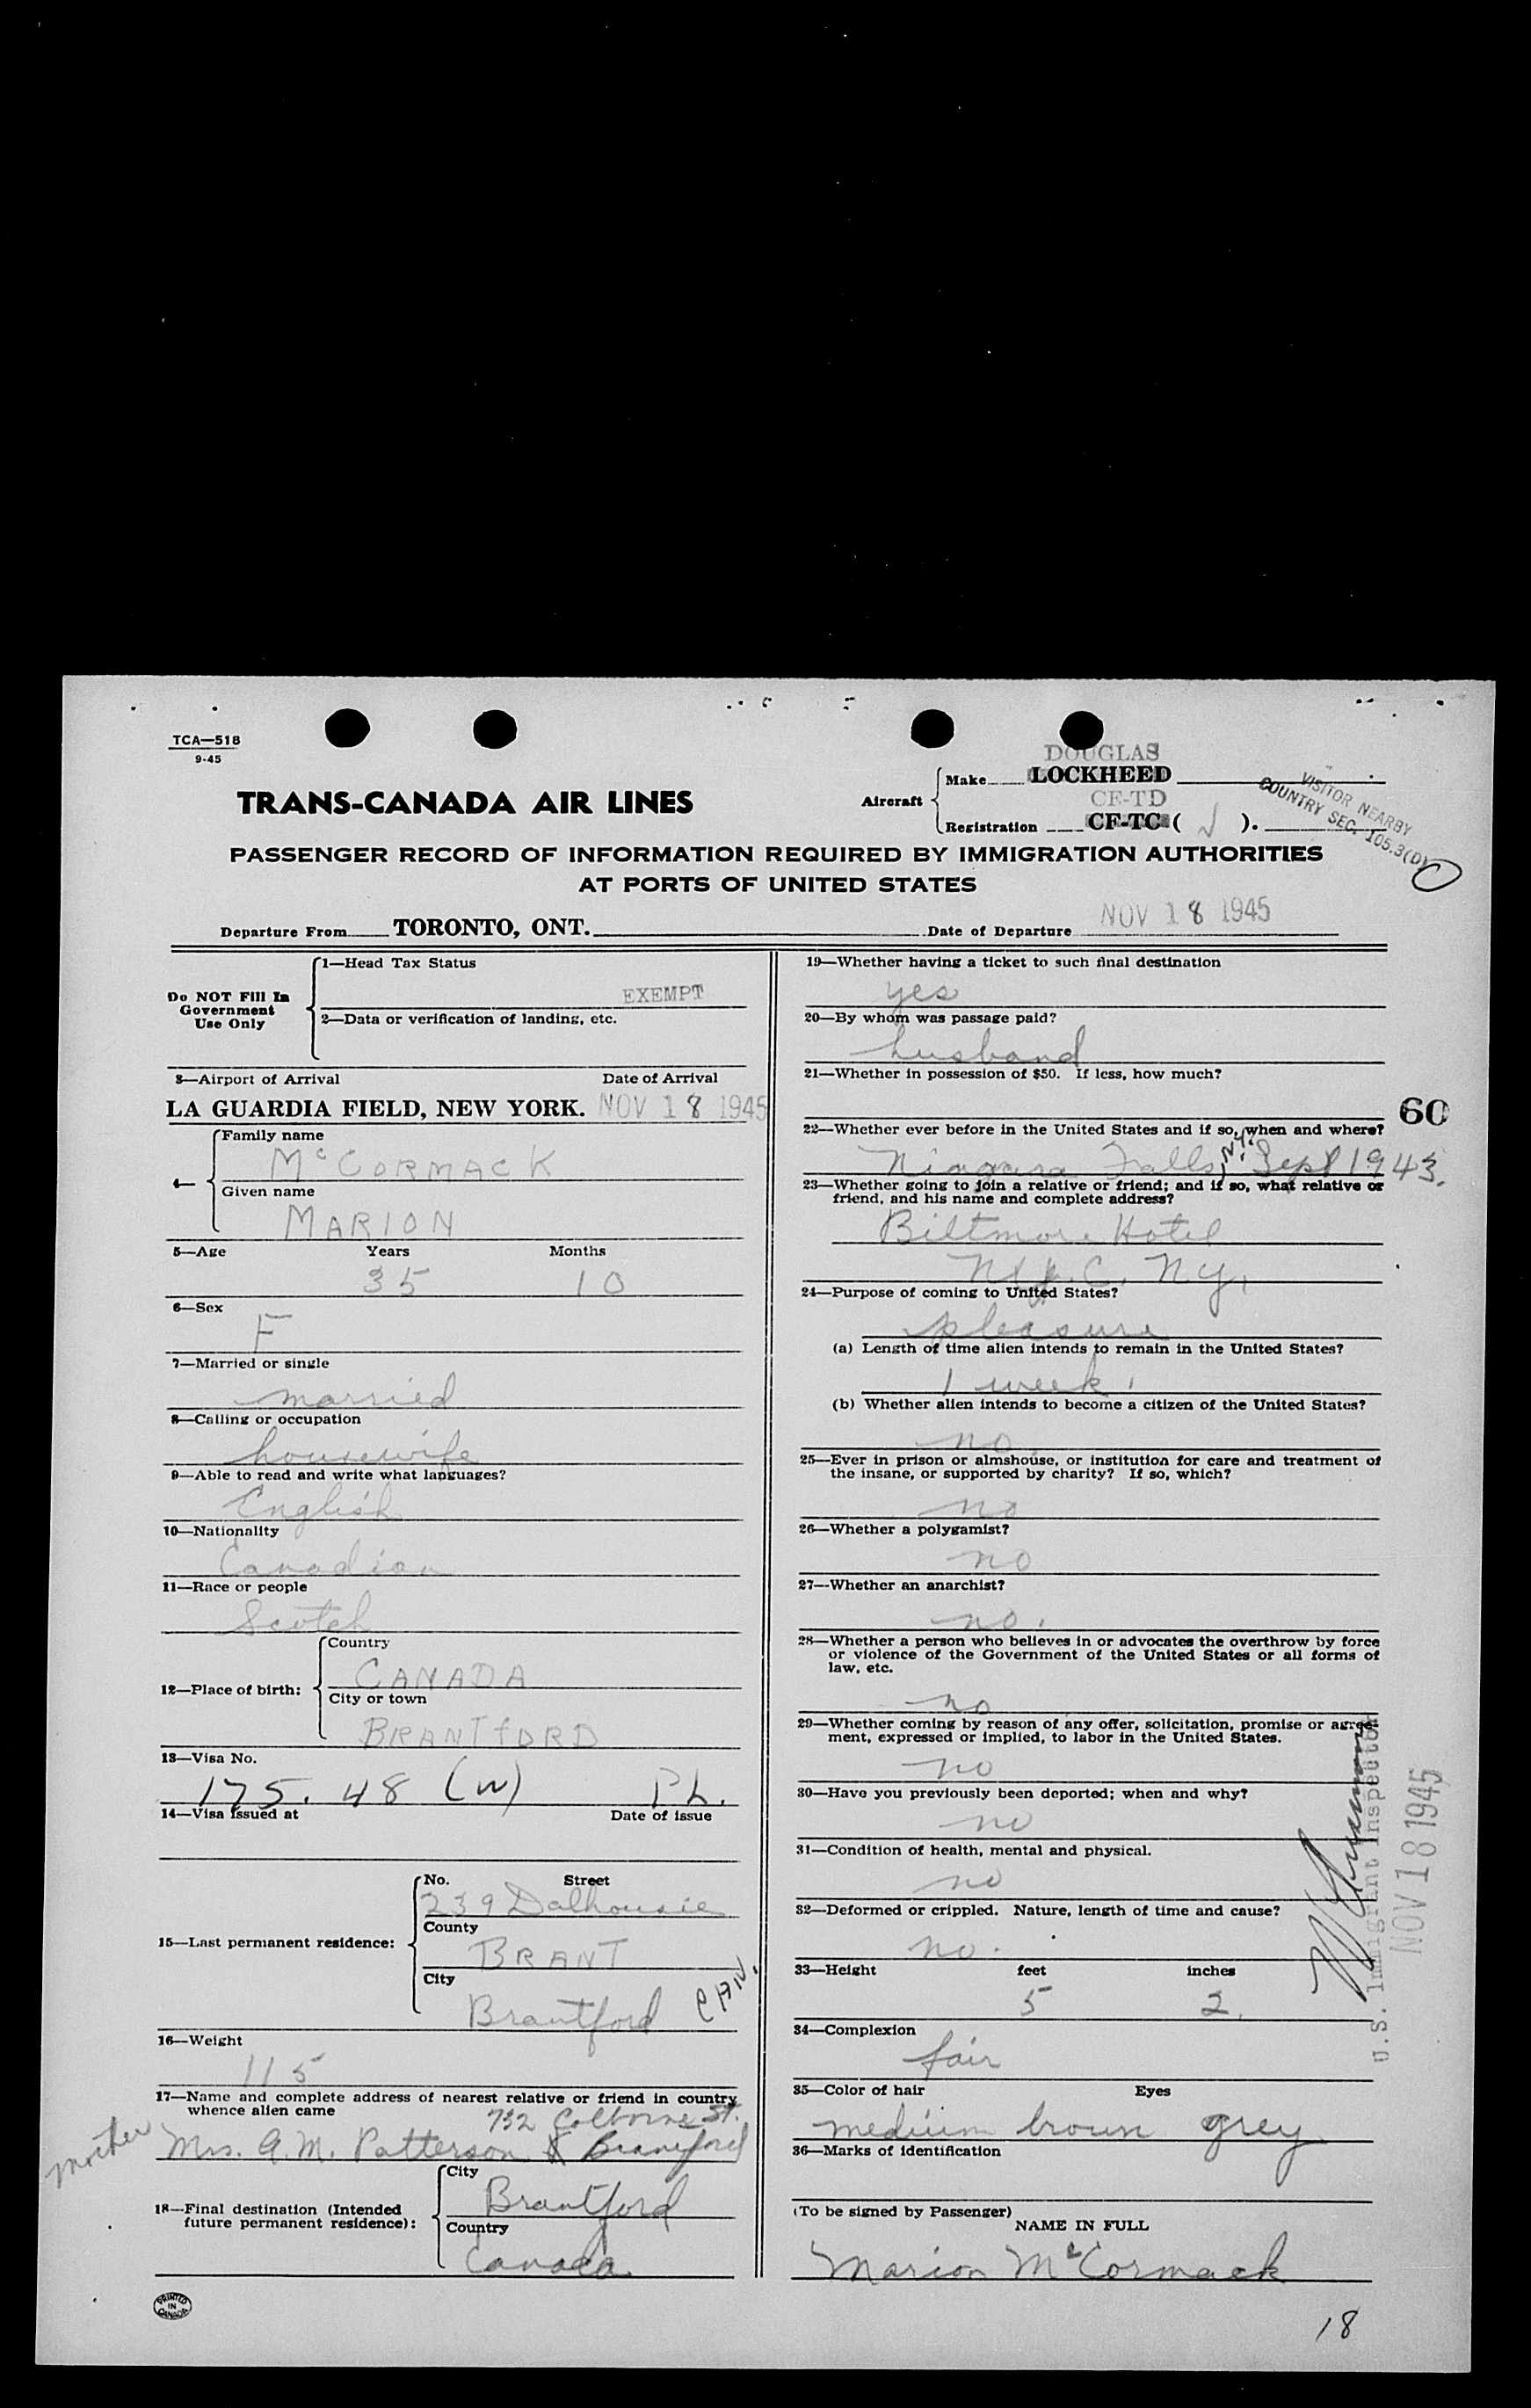 TCA—518
9-45
DOUGLAS
Make LOCKHEED
TRANS-CANADA AIR LINES
Aircraft
CF-TD
Registration CF-TC ( J ).
VISITOR NEARBY
COUNTRY SEC. 105.3(D)
PASSENGER RECORD OF INFORMATION REQUIRED BY IMMIGRATION AUTHORITIES
AT PORTS OF UNITED STATES
Departure From TORONTO, ONT. Date of Departure NOV 18 1945
Do NOT Fill In
Government
Use Only
1—Head Tax Status
EXEMPT
2—Data or verification of landing, etc.
3—Airport of Arrival Date of Arrival
LA GUARDIA FIELD, NEW YORK. NOV 18 1945
4—
Family name
McCORMACK
Given name
MARION
5—Age Years Months
35 10
6—Sex
F
7—Married or single
married
8—Calling or occupation
housewife
9—Able to read and write what languages?
English
10—Nationality
Canadian
11—Race or people
Scotch
12—Place of birth:
Country
CANADA
City or town
BRANTfORD
13—Visa No.
175.48 (W) PL.
14—Visa issued at Date of issue
15—Last permanent residence:
No. Street
239 Dalhousie
County
BRANT
City
Brantford CAN.
16—Weight
115
17—Name and complete address of nearest relative or friend in country
whence alien came
732 Colborne St.
mother Mrs. A.M. Patterson Brantford
18—Final destination (Intended
future permanent residence):
City
Brantford
Country
Canada
PRINTED
IN
CANADA
19—Whether having a ticket to such final destination
yes
20—By whom was passage paid?
husband
21—Whether in possession of $50. If less, how much?
60
22—Whether ever before in the United States and if so, when and where?
Niagara Falls, N.Y. Sept 1943.
23—Whether going to join a relative or friend; and if so, what relative or
friend, and his name and complete address?
Biltmore Hotel
N.Y.C. N.Y.
24—Purpose of coming to United States?
pleasure
(a) Length of time alien intends to remain in the United States?
1 week.
(b) Whether alien intends to become a citizen of the United States?
no
25—Ever in prison or almshouse, or institution for care and treatment of
the insane, or supported by charity? If so, which?
no
26—Whether a polygamist?
no
27—Whether an anarchist?
no.
28—Whether a person who believes in or advocates the overthrow by force
or violence of the Government of the United States or all forms of
law, etc.
no
29—Whether coming by reason of any offer, solicitation, promise or agree-
ment, expressed or implied, to labor in the United States.
no
30—Have you previously been deported; when and why?
no
31—Condition of health, mental and physical.
no
32—Deformed or crippled. Nature, length of time and cause?
no.
33—Height feet inches
5 2.
34—Complexion
fair
35—Color of hair Eyes
medium brown grey
36—Marks of identification
(To be signed by Passenger)
NAME IN FULL
Marion McCormack
U.S. Immigrant Inspector
NOV 18 1945
18